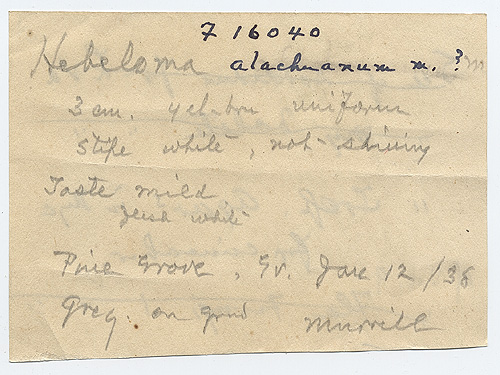 F 16040
Hebeloma alachuanum m. ? m
3 cm. yel-brn uniform
Stipe white, not shining
Taste mild
flesh white
Pine Grove, Gv. Jan 12/38
Greg. on grnd
Murrill